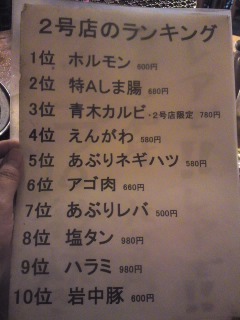 ２号店のランキング
1位 ホルモン 600円
2位 特Aしま腸 680円
3位 青木カルビ・2号店限定 780円
4位 えんがわ 580円
5位 あぶりネギハツ 580円
6位 アゴ肉 660円
7位 あぶりレバ 500円
8位 塩タン 980円
9位 ハラミ 980円
10位 岩中豚 600円